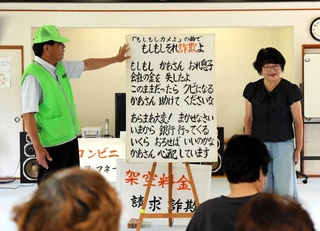 「もしもしカメよ」の曲で
もしもしそれ詐欺よ
もしもし かあさん おれ息子
会社の金を 失したよ
このままだったら クビになる
かあさん 助けてくださいな
あらまあ大変! まかせなさい
いまから 銀行 行ってくる
いくら おろせば いいのかな
かあさん 心配しています
コンビニ
架空料金
請求詐欺